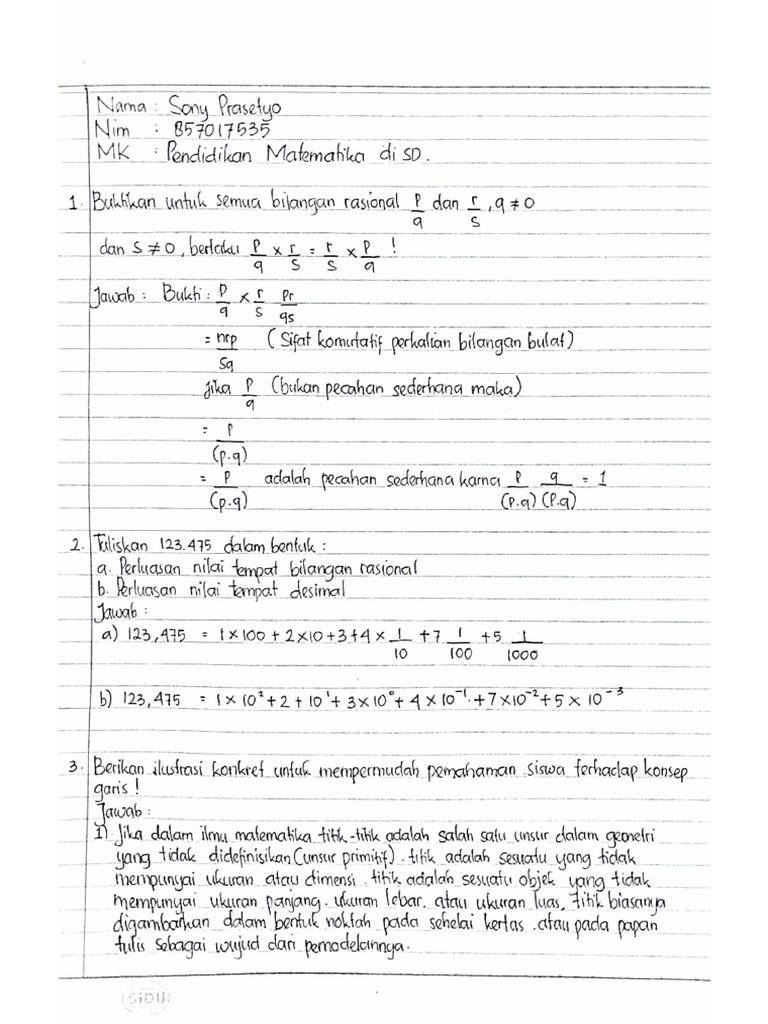 Nama : Sony Prasetyo
Nim : 857017535
MK : Pendidikan Matematika di SD.
1. Buktikan untuk semua bilangan rasional p/q dan r/s, q ≠ 0
dan s ≠ 0, berlaku p/q × r/s = r/s × p/q !
Jawab : Bukti : p/q × r/s pr/qs
= nrp/sq (Sifat komutatif perkalian bilangan bulat)
jika p/q (bukan pecahan sederhana maka)
= p/(p.q)
= p/(p.q) adalah pecahan sederhana karna p/(p.q) q/(p.q) = 1
2. Tuliskan 123.475 dalam bentuk :
a. Perluasan nilai tempat bilangan rasional
b. Perluasan nilai tempat desimal
Jawab :
a) 123,475 = 1×100 + 2×10+3+4× 1/10 +7 1/100 +5 1/1000
b) 123,475 = 1× 10² + 2 + 10¹ + 3×10⁰ + 4 × 10⁻¹. +7×10⁻² + 5 × 10⁻³
3. Berikan ilustrasi konkret untuk mempermudah pemahaman siswa terhadap konsep
garis !
Jawab :
1). Jika dalam ilmu matematika titik-titik adalah salah satu unsur dalam geometri
yang tidak didefinisikan (unsur primitif). titik adalah sesuatu yang tidak
mempunyai ukuran atau dimensi. titik adalah sesuatu objek yang tidak
mempunyai ukuran panjang. ukuran lebar. atau ukuran luas, titik biasanya
digambarkan dalam bentuk noktah pada sehelai kertas .atau pada papan
tulis sebagai wujud dari pemodelannya.
SiDU